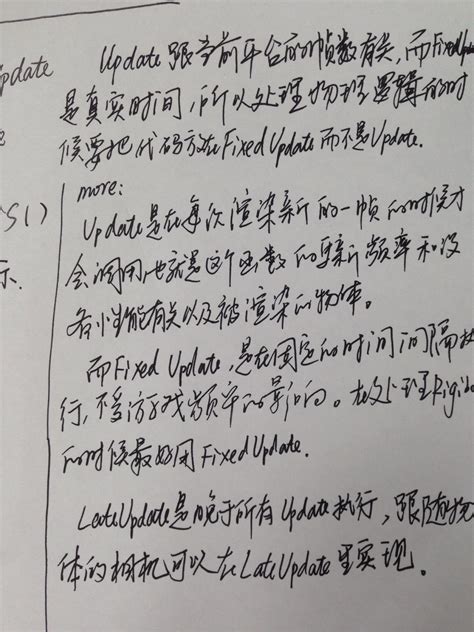 pdate
Update跟当前平台的帧数有关,而FixedUpdate
是真实时间,所以处理物理逻辑的时
候要把代码放在FixedUpdate而不是Update.
more:
S()
Update是在每次渲染新的一帧的时候才
会调用,也就是这个函数的更新频率和设
示.
备性能有关以及被渲染的物体。
而Fixed Update,是在固定的时间间隔执
行,不受游戏频率的影响。在处理Rigidbo
的时候最好用FixedUpdate.
LateUpdate是晚于所有Update执行,跟随物
体的相机可以在LateUpdate里实现.